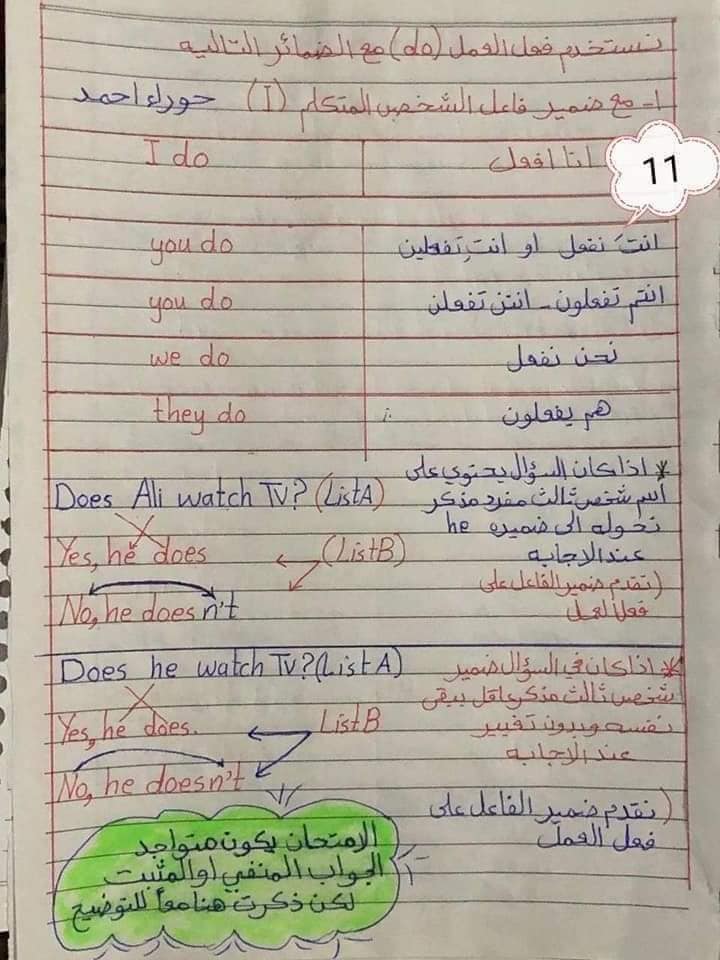 نستخدم فعل العمل (do) مع الضمائر التاليه
١- مع ضمير فاعل الشخص المتكلم (I) حوراء احمد
انا افعل I do
11
انتَ تفعل او انتِ تفعلين you do
انتم تفعلون - انتن تفعلن you do
نحن نفعل we do
هم يفعلون they do
* اذا كان السؤال يحتوي على
اسم شخص ثالث مفرد مذكر
نحوله الى ضميره he
عند الاجابه
(نقدم ضمير الفاعل على
فعل العمل
Does Ali watch Tv? (List A)
Yes, he does (List B)
No, he doesn't
* اذا كان في السؤال ضمير
شخص ثالث مذكر عاقل يبقى
نفسه وبدون تغيير
عند الاجابه
(نقدم ضمير الفاعل على
فعل العمل
Does he watch Tv? (List A)
Yes, he does. List B
No, he doesn't
الامتحان يكون متواجد
الجواب المنفي او المثبت
لكن ذكرت هنا معاً للتوضيح